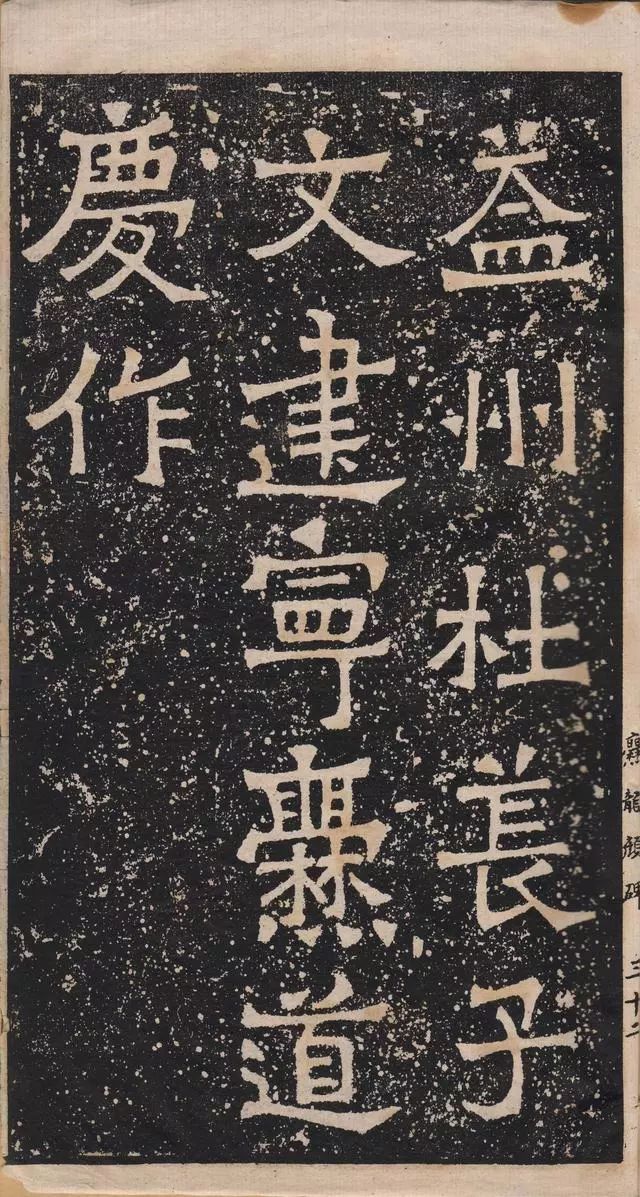 益州杜萇子
文建寧爨道
慶作
爨龍顏碑 三十二